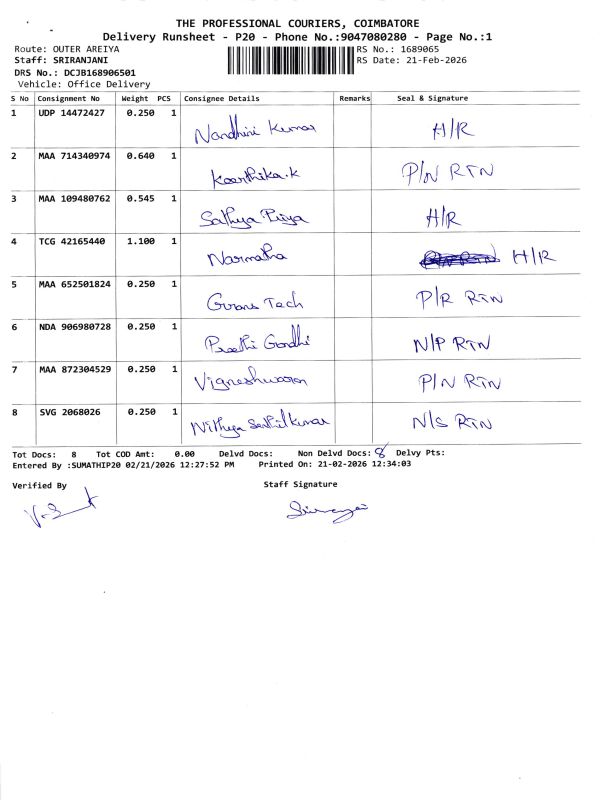 THE PROFESSIONAL COURIERS, COIMBATORE
Delivery Runsheet - P20 - Phone No.:9047080280 - Page No.:1
Route: OUTER AREIYA RS No.: 1689065
Staff: SRIRANJANI RS Date: 21-Feb-2026
DRS No.: DCJB168906501
Vehicle: Office Delivery
S No Consignment No Weight PCS Consignee Details Remarks Seal & Signature
1 UDP 14472427 0.250 1 Nandhini Kumar H/R
2 MAA 714340974 0.640 1 Keerthika.K P/N RTN
3 MAA 109480762 0.545 1 Sathya Priya H/R
4 TCG 42165440 1.100 1 Narmatha H/R
5 MAA 652501824 0.250 1 Tech P/R RTN
6 NDA 906980728 0.250 1 Preethi Gandhi N/P RTN
7 MAA 872304529 0.250 1 Vigneshwaran P/N RTN
8 SVG 2068026 0.250 1 Nithya Senthilkumar N/S RTN
Tot Docs: 8 Tot COD Amt: 0.00 Delvd Docs: Non Delvd Docs: 8 Delvy Pts:
Entered By :SUMATHIP20 02/21/2026 12:27:52 PM Printed On: 21-02-2026 12:34:03
Verified By Staff Signature